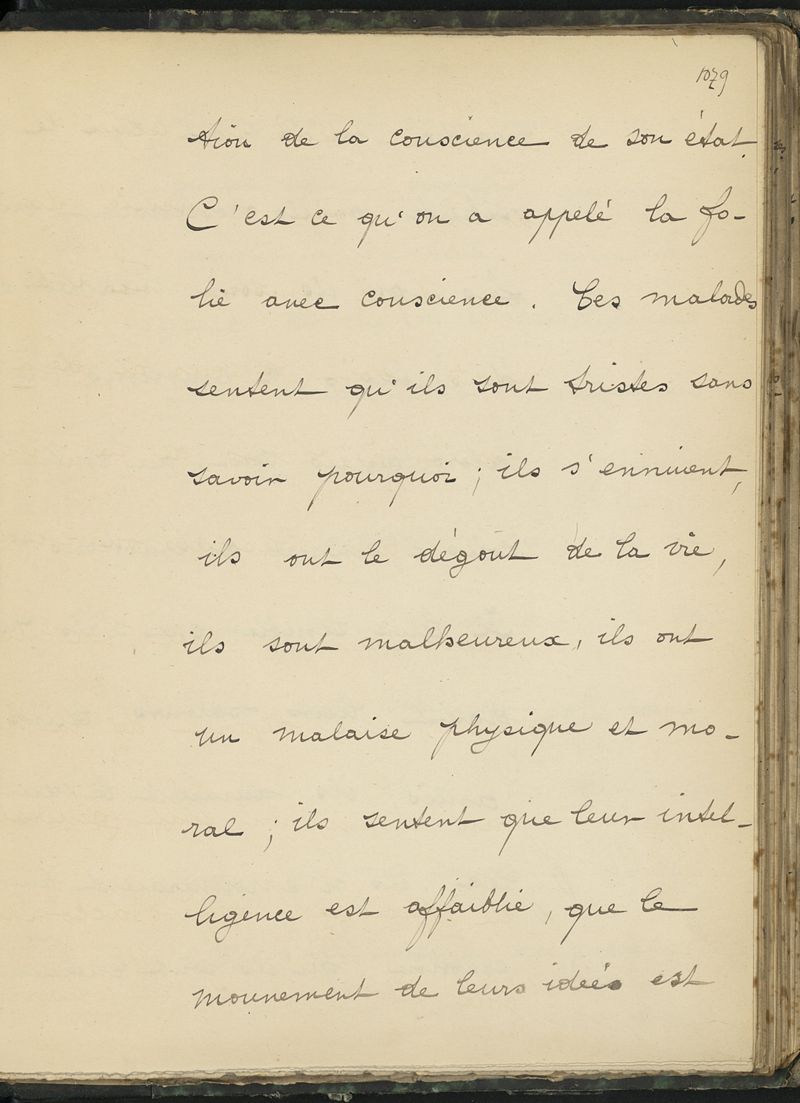 1079
tion de la conscience de son état.
C'est ce qu'on a appelé la fo-
lie avec conscience. Ces malades
sentent qu'ils sont tristes sans
savoir pourquoi; ils s'ennuient,
ils ont le dégout de la vie,
ils sont malheureux, ils ont
un malaise physique et mo-
ral; ils sentent que leur intel-
ligence est affaiblie, que le
mouvement de leurs idées est